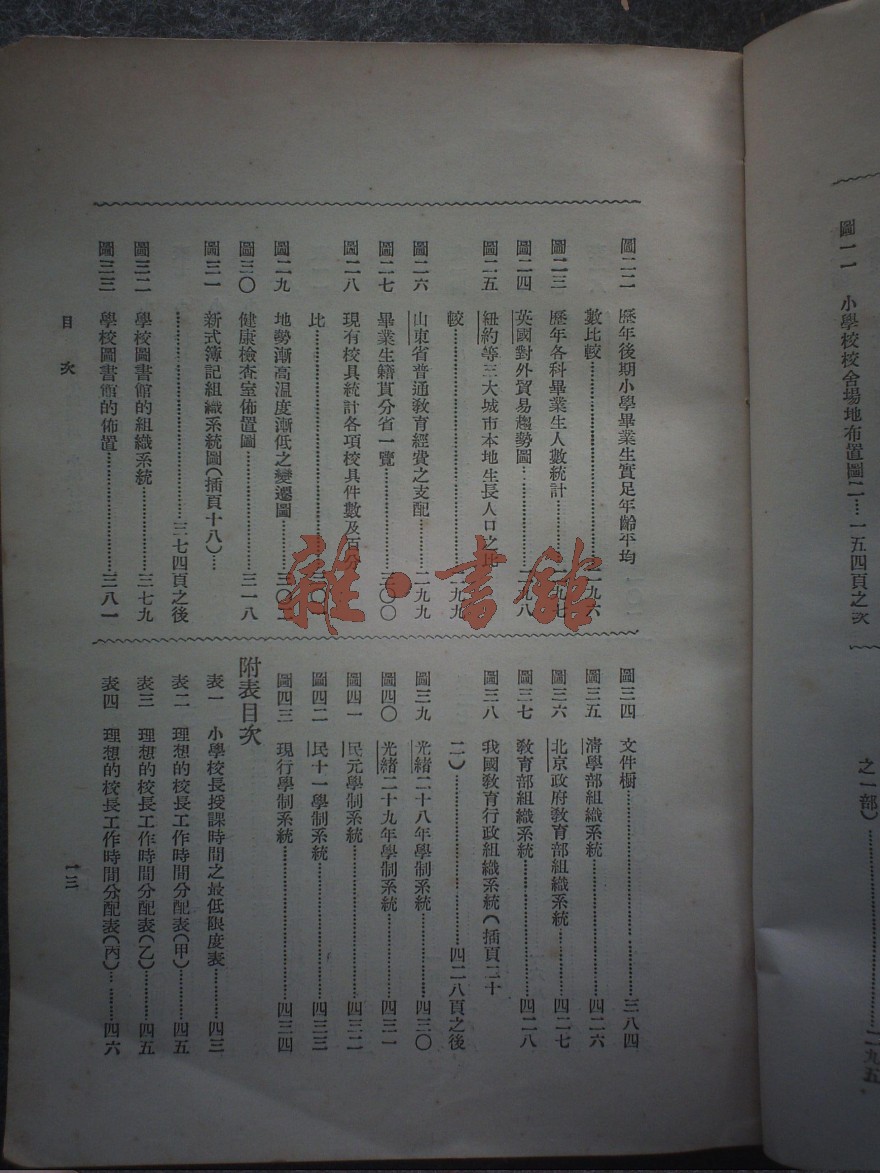 圖一一　小學校校舍場地布置圖二……一五四頁之次
之一部）……二九五
圖二二　歷年後期小學畢業生實足年齡平均
數比較……二九六
圖二三　歷年各科畢業生人數統計……二九七
圖二四　英國對外貿易趨勢圖……二九八
圖二五　紐約等三大城市本地生長人口之比
較……二九九
圖二六　山東省普通教育經費之支配……二九九
圖二七　畢業生籍貫分省一覽……三〇〇
圖二八　現有校具統計各項校具件數及百分
比……三〇一
圖二九　地勢漸高溫度漸低之變遷圖……三〇二
圖三〇　健康檢查室佈置圖……三一八
圖三一　新式簿記組織系統圖（插頁十八）…
……三七四頁之後
圖三二　學校圖書館的組織系統……三七九
圖三三　學校圖書館的佈置……三八一
圖三四　文件櫥……三八四
圖三五　清學部組織系統……四二六
圖三六　北京政府教育部組織系統……四二七
圖三七　教育部組織系統……四二八
圖三八　我國教育行政組織系統（插頁二十
二）……四二八頁之後
圖三九　光緒二十八年學制系統……四三〇
圖四〇　光緒二十九年學制系統……四三一
圖四一　民元學制系統……四三二
圖四二　民十一學制系統……四三三
圖四三　現行學制系統……四三四
附表目次
表一　小學校長授課時間之最低限度表……四三
表二　理想的校長工作時間分配表（甲）……四五
表三　理想的校長工作時間分配表（乙）……四五
表四　理想的校長工作時間分配表（丙）……四六
目次
十三
雜·書館